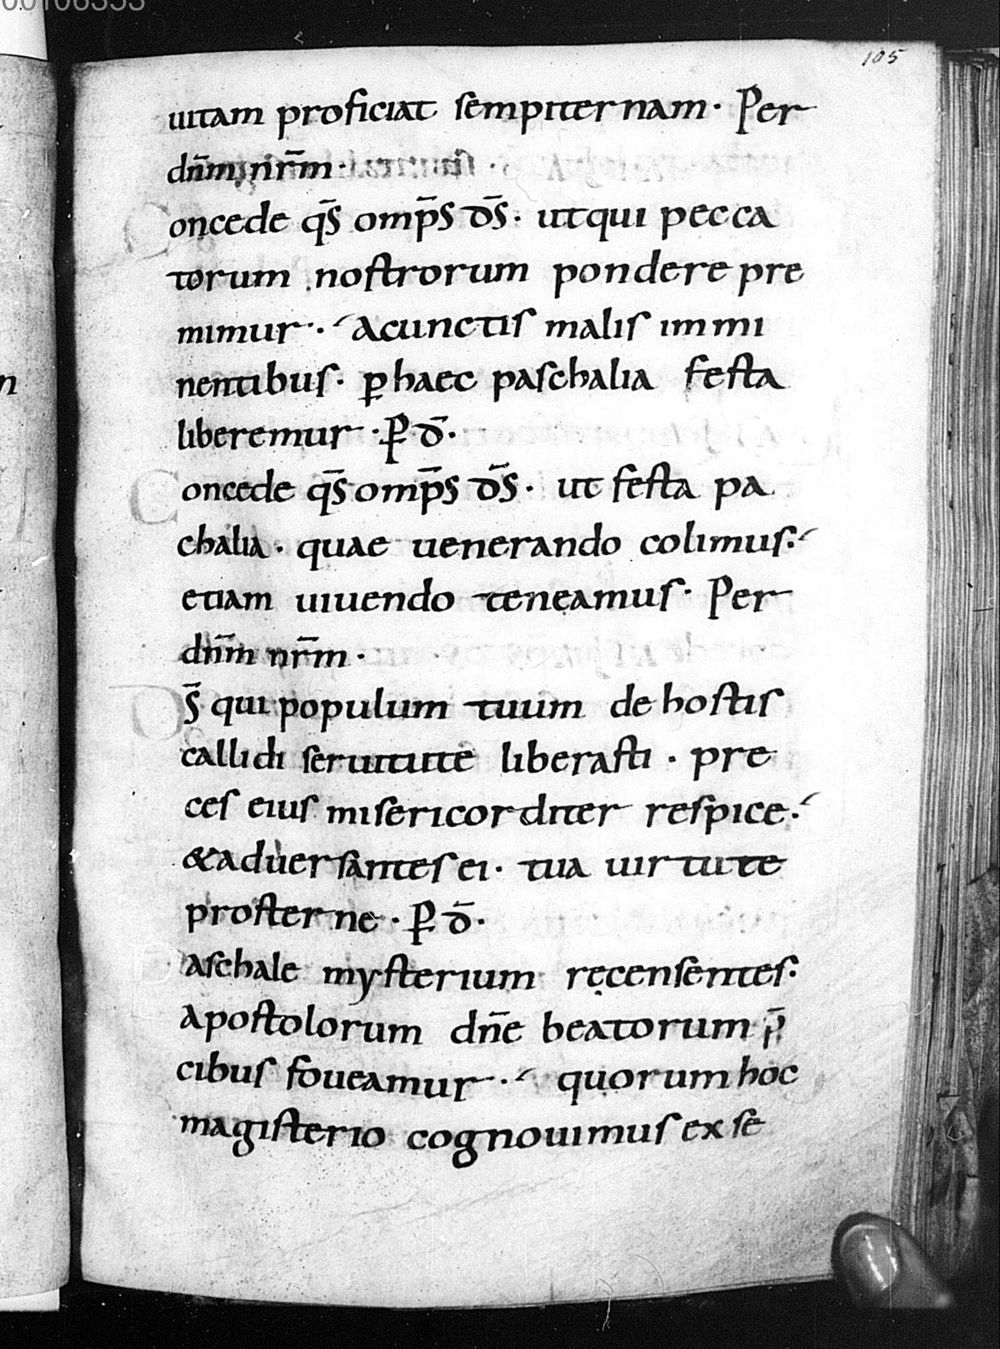 00106353
105
uitam proficiat sempiternam · Per
dn̄m nr̄m ·
Concede qs̄ omp̄s ds̄ · ut qui pecca
torum nostrorum pondere pre
mimur · a cunctis malis immi
nentibus · ꝑ haec paschalia festa
liberemur · P d̄ ·
Concede qs̄ omp̄s ds̄ · ut festa pa
chalia · quae uenerando colimus ·
etiam uiuendo teneamus · Per
dn̄m nr̄m ·
Ds̄ qui populum tuum de hostis
callidi seruitute liberasti · pre
ces eius misericorditer respice ·
& aduersantes ei · tua uirtute
prosterne · P d̄ ·
Paschale mysterium recensentes ·
apostolorum dn̄e beatorum p̄
cibus foueamur · quorum hoc
magisterio cognouimus exse
n